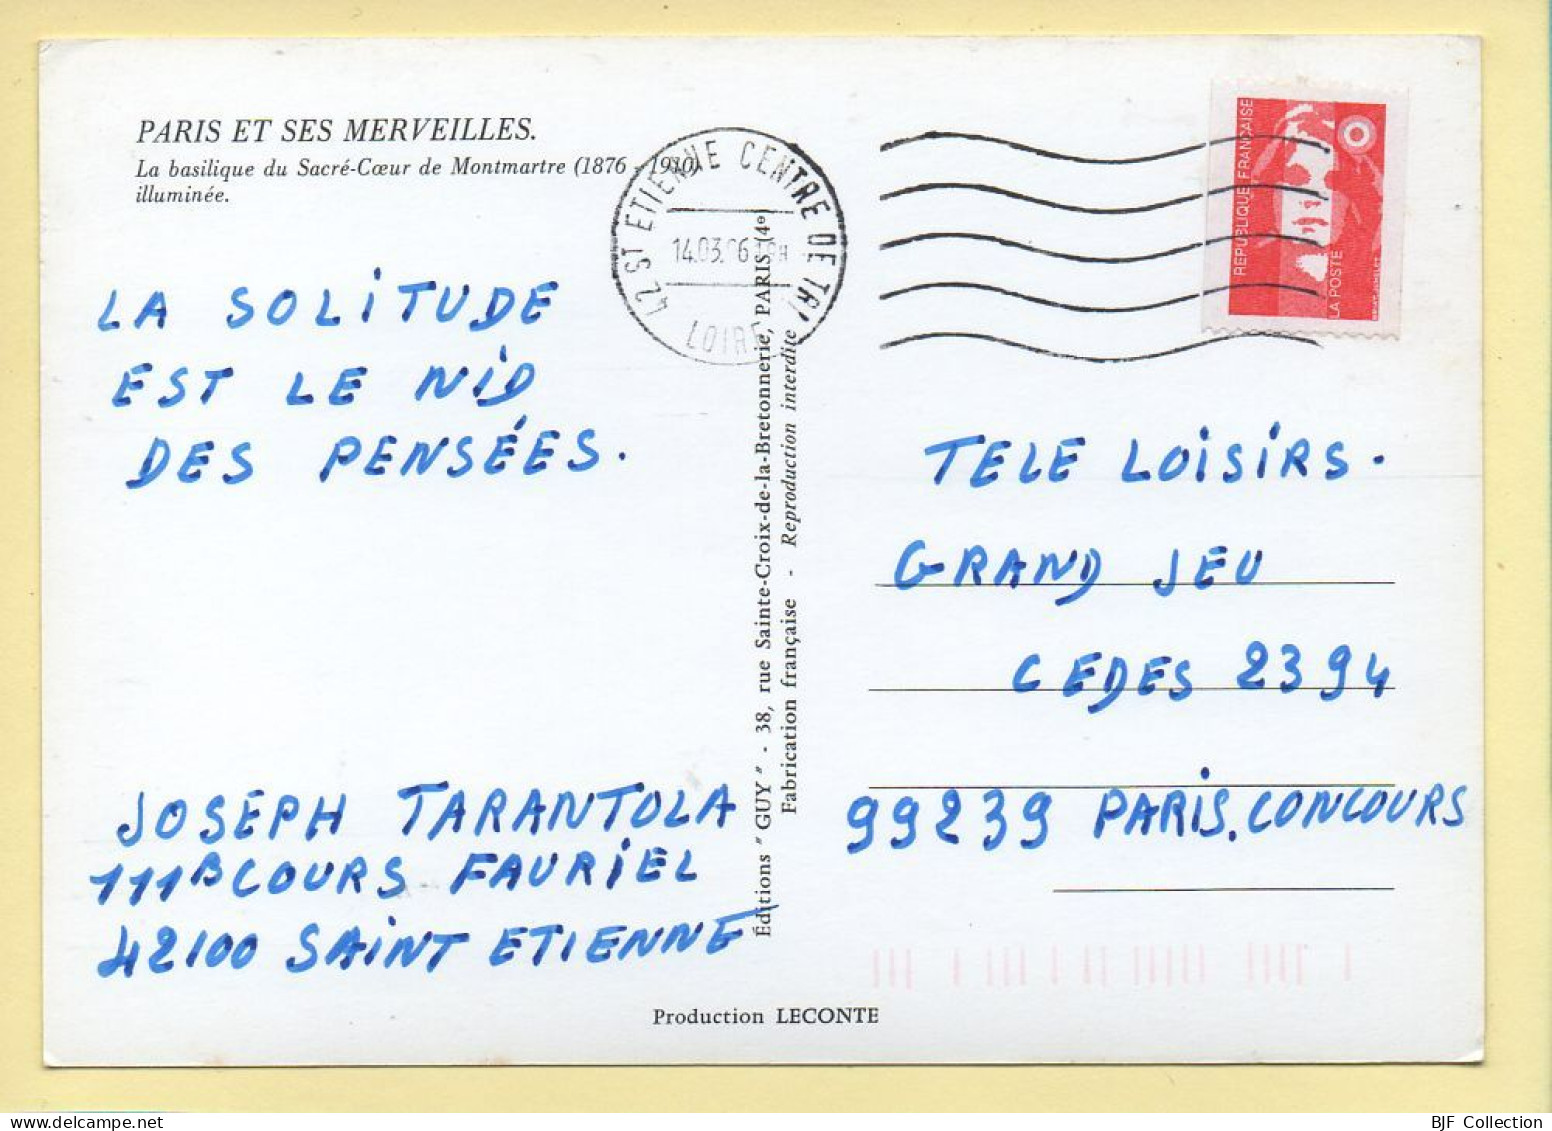 PARIS ET SES MERVEILLES.
La basilique du Sacré-Cœur de Montmartre (1876 - 1910)
illuminée.
42 ST ETIENNE CENTRE DE TRI
14.03. 6
LOIRE
REPUBLIQUE FRANÇAISE
LA POSTE
LA SOLITUDE
EST LE NID
DES PENSÉES.
JOSEPH TARANTOLA
111B COURS FAURIEL
42100 SAINT ETIENNE
Éditions "GUY" - 38, rue Sainte-Croix-de-la-Bretonnerie, PARIS (4e)
Fabrication française - Reproduction interdite
TELE LOISIRS.
GRAND JEU
CEDES 2394
99239 PARIS. CONCOURS
Production LECONTE
BJF Collection